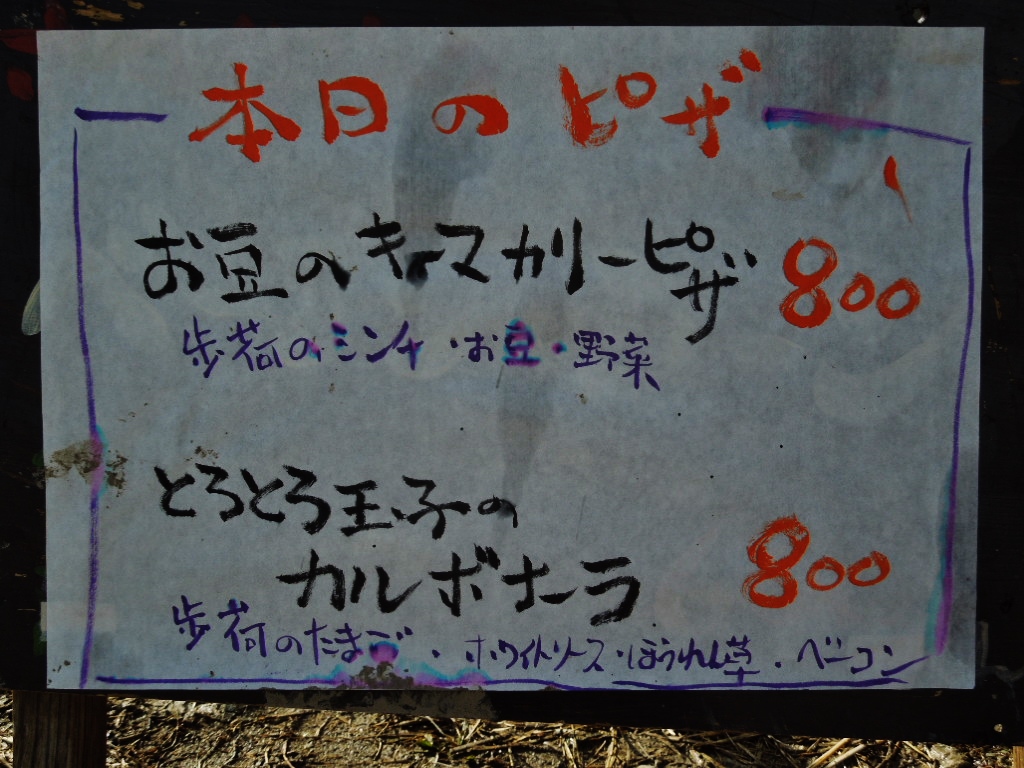 本日のピザ
お豆のキーマカリーピザ 800
歩荷のミンチ・お豆・野菜
とろとろ玉子の
カルボナーラ 800
歩荷のたまご・ホワイトソース・ほうれん草・ベーコン